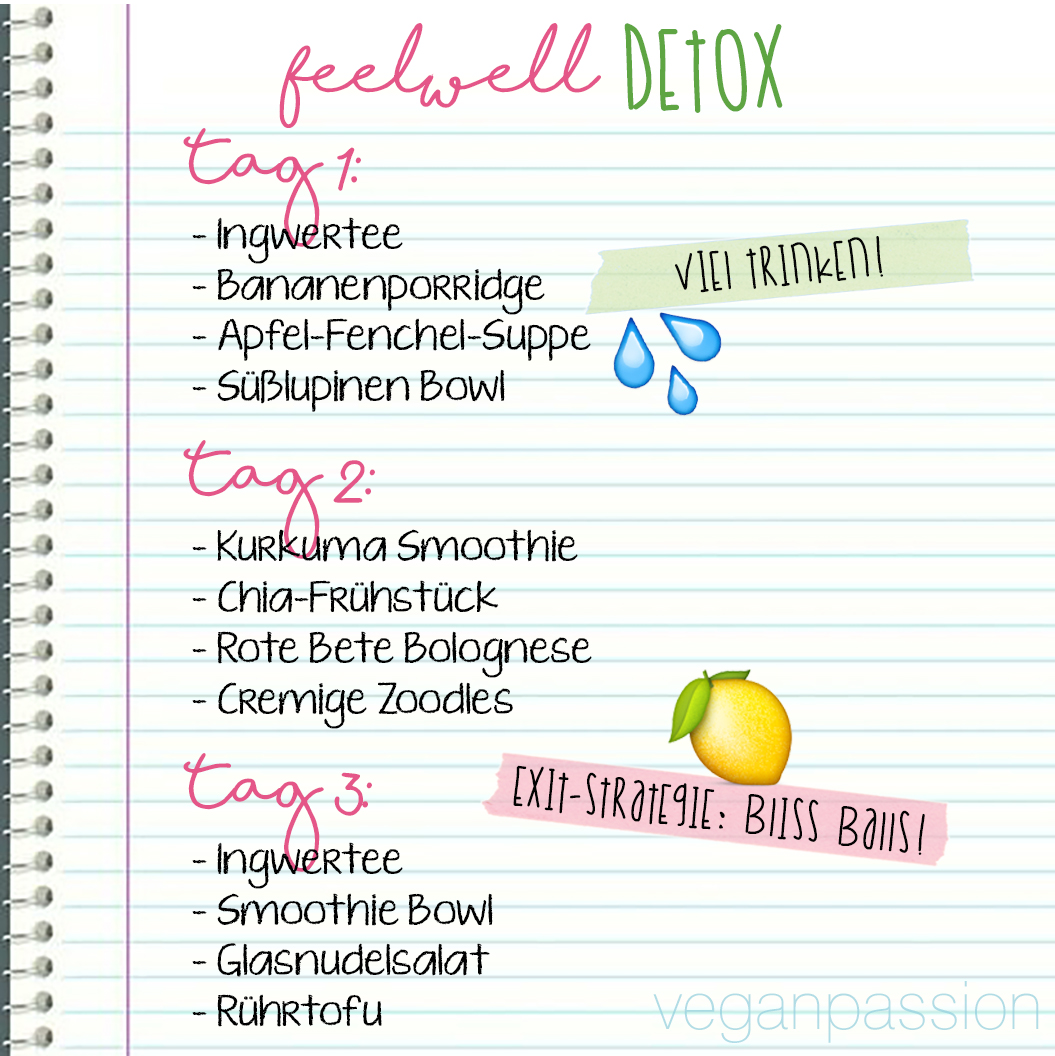 feelwell DETOX
tag 1:
- Ingwertee
- Bananenporridge
- Apfel-Fenchel-Suppe
- Süßlupinen Bowl
Viel trinken!
tag 2:
- Kurkuma Smoothie
- Chia-Frühstück
- Rote Bete Bolognese
- Cremige Zoodles
tag 3:
Exit-Strategie: Bliss Balls!
- Ingwertee
- Smoothie Bowl
- Glasnudelsalat
- Rührtofu
veganpassion